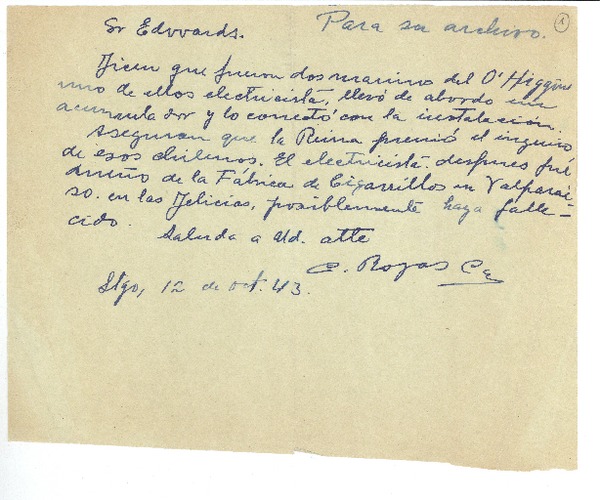 Sr Edwards.
Para su archivo.
1
Dicen que fueron dos marinos del O'Higgins
uno de ellos electricista, llevó de abordo un
acumulador y lo conectó con la instalación.
Aseguran que la Reina premió el ingenio
de esos chilenos. El electricista despues fué
dueño de la Fábrica de Cigarrillos en Valparai-
so. en las Delicias, posiblemente haya falle-
cido.
Saluda a Ud. atte
C. Rojas
Stgo, 12 de oct. 43.